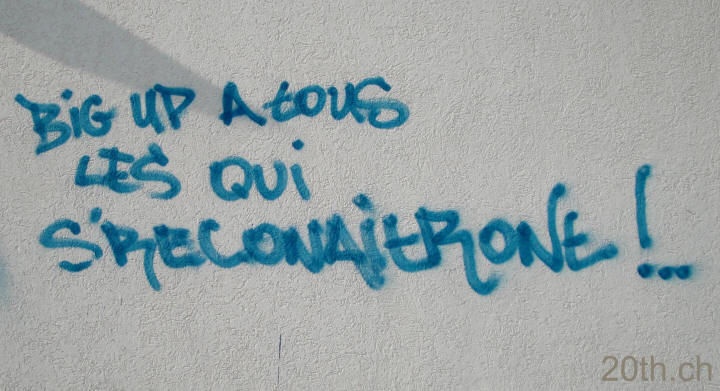 BiG UP A tOUS
LES QUi
S'RECONAitRONt !...
20th.ch